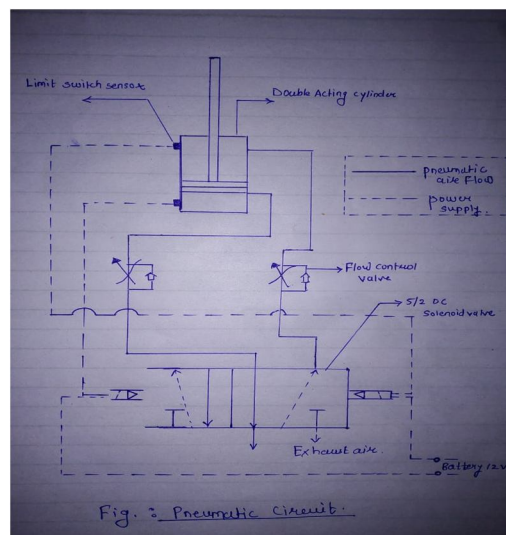 Limit switch sensor
Double Acting cylinder
pneumatic
air Flow
power
supply.
Flow control
valve
5/2 DC
Solenoid valve
Exhaust air.
Battery 12 v
Fig. : Pneumatic Circuit.